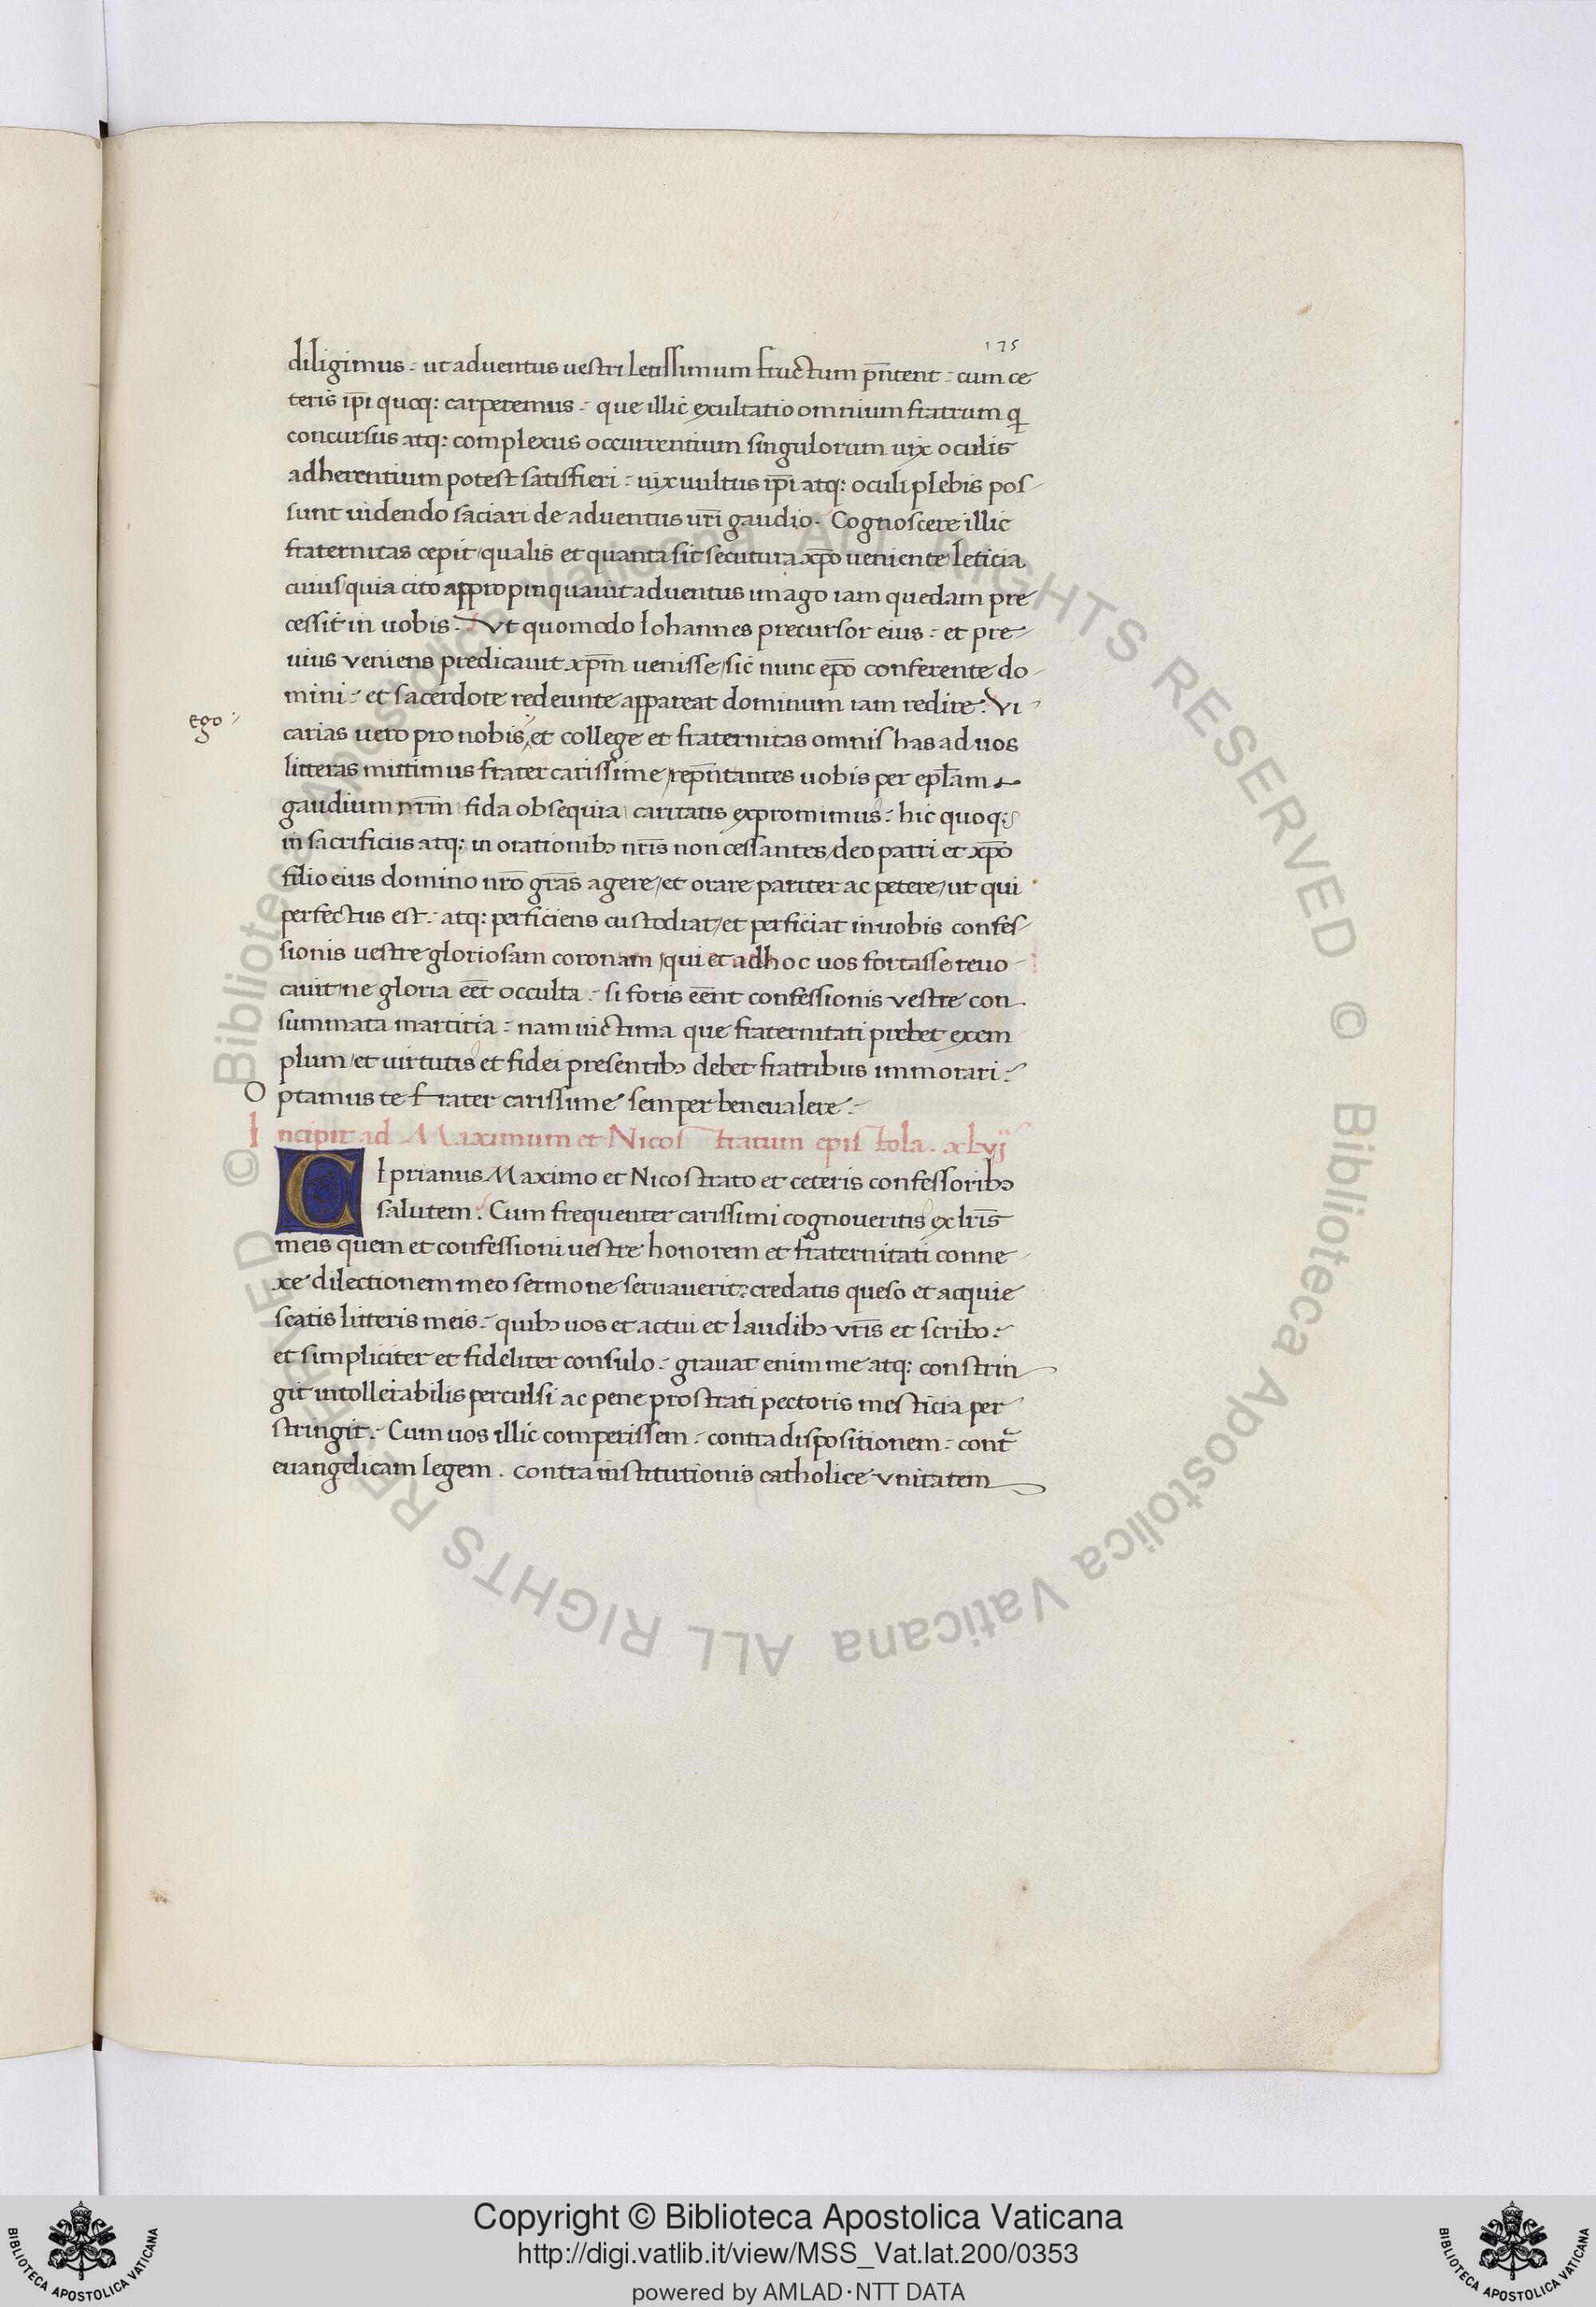 175
diligimus · ut adventus vestri letissimum fructum p̄ntent · cum ce
teris ip̄i quoq: carperemus · que illic excultatio omnium fratrum q
concursus atq: complexus occurrentium singulorum uix oculis
adherentium potest satisfieri · uix uultus ip̄i atq: oculi plebis pos
sunt uidendo saciari de adventus ur̄i gaudio · Cognoscere illic
fraternitas cepit / qualis et quanta sit secutura xp̄o veniente leticia
cuius / quia cito appropinquauit adventus imago iam quedam pre
cessit in uobis · Vt quomodo Iohannes precursor eius · et pre
uius veniens predicauit xp̄m venisse / sic nunc ep̄o conferente do
mini · et sacerdote redeunte appareat dominum iam redire · Vi
ego
carias uero pro nobis, et college et fraternitas omnis has ad uos
litteras mittimus frater carissime / rep̄ntantes uobis per ep̄lam
gaudium nr̄m fida obsequia caritatis expromimus · hic quoq:
in sacrificiis atq: in orationibꝫ nr̄is non cessantes / deo patri et xp̄o
filio eius domino nr̄o gr̄as agere / et orare pariter ac petere / ut qui
perfectus est · atq: perficiens custodiat / et perficiat in uobis confes
sionis vestre gloriosam coronam / qui et adhoc uos fortasse reuo
cauit / ne gloria eēt occulta · si foris eēnt confessionis vestre con
summata martiria · nam uictima que fraternitati prebet exem
plum / et uirtutis et fidei presentibꝫ debet fratribus immorari ·
Optamus te Frater carissime semper bene ualere ·
Incipit ad Maximum et Nicostratum epistola · xlvij
CIprianus Maximo et Nicostrato et ceteris confessoribꝫ
salutem · Cum frequenter carissimi cognoveritis ex lr̄is
meis quem et confessioni vestre honorem et fraternitati conne
xe dilectionem meo sermone seruauerit: credatis queso et acquie
scatis litteris meis · quibꝫ uos et actui et laudibꝫ vr̄is et scribo ·
et simpliciter et fideliter consulo · grauat enim me atq: constrin
git intollerabilis perculsi ac pene prostrati pectoris mesticia per
stringit · Cum uos illic comperissem · contra dispositionem · cont̄
euangelicam legem · contra institutionis catholice vnitatem
© Biblioteca Apostolica Vaticana ALL RIGHTS RESERVED © Biblioteca Apostolica Vaticana ALL RIGHTS RESERVED
BIBLIOTECA APOSTOLICA VATICANA
Copyright © Biblioteca Apostolica Vaticana
http://digi.vatlib.it/view/MSS_Vat.lat.200/0353
powered by AMLAD·NTT DATA
BIBLIOTECA APOSTOLICA VATICANA